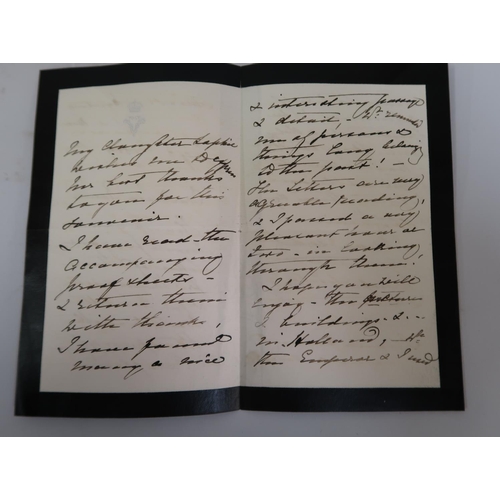 My daughter Sophie
wishes me to express
her best thanks
to you for this
souvenir.
I have read the
accompanying
proof sheets —
& return them
with thanks,
I have found
many a nice
& interesting passage
& detail — it reminds
me of persons &
things long belong
to the past! —
The Letters are very
agreeable reading,
& I passed a very
pleasant hour or
two — in looking
through them!
I hope you will
enjoy — the pictures
& buildings — & —
in Holland,
the Emperor & I used